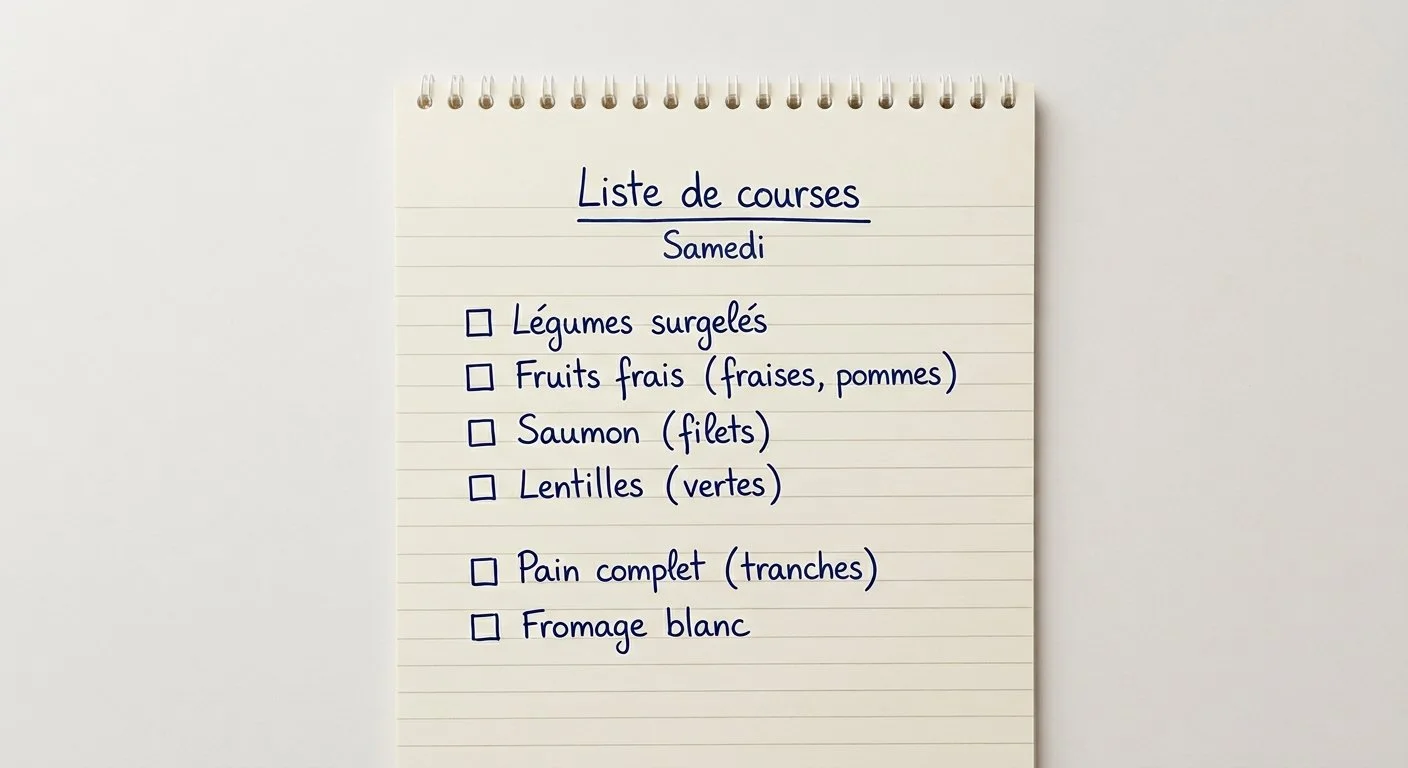 Liste de courses
Samedi
Légumes surgelés
Fruits frais (fraises, pommes)
Saumon (filets)
Lentilles (vertes)
Pain complet (tranches)
Fromage blanc